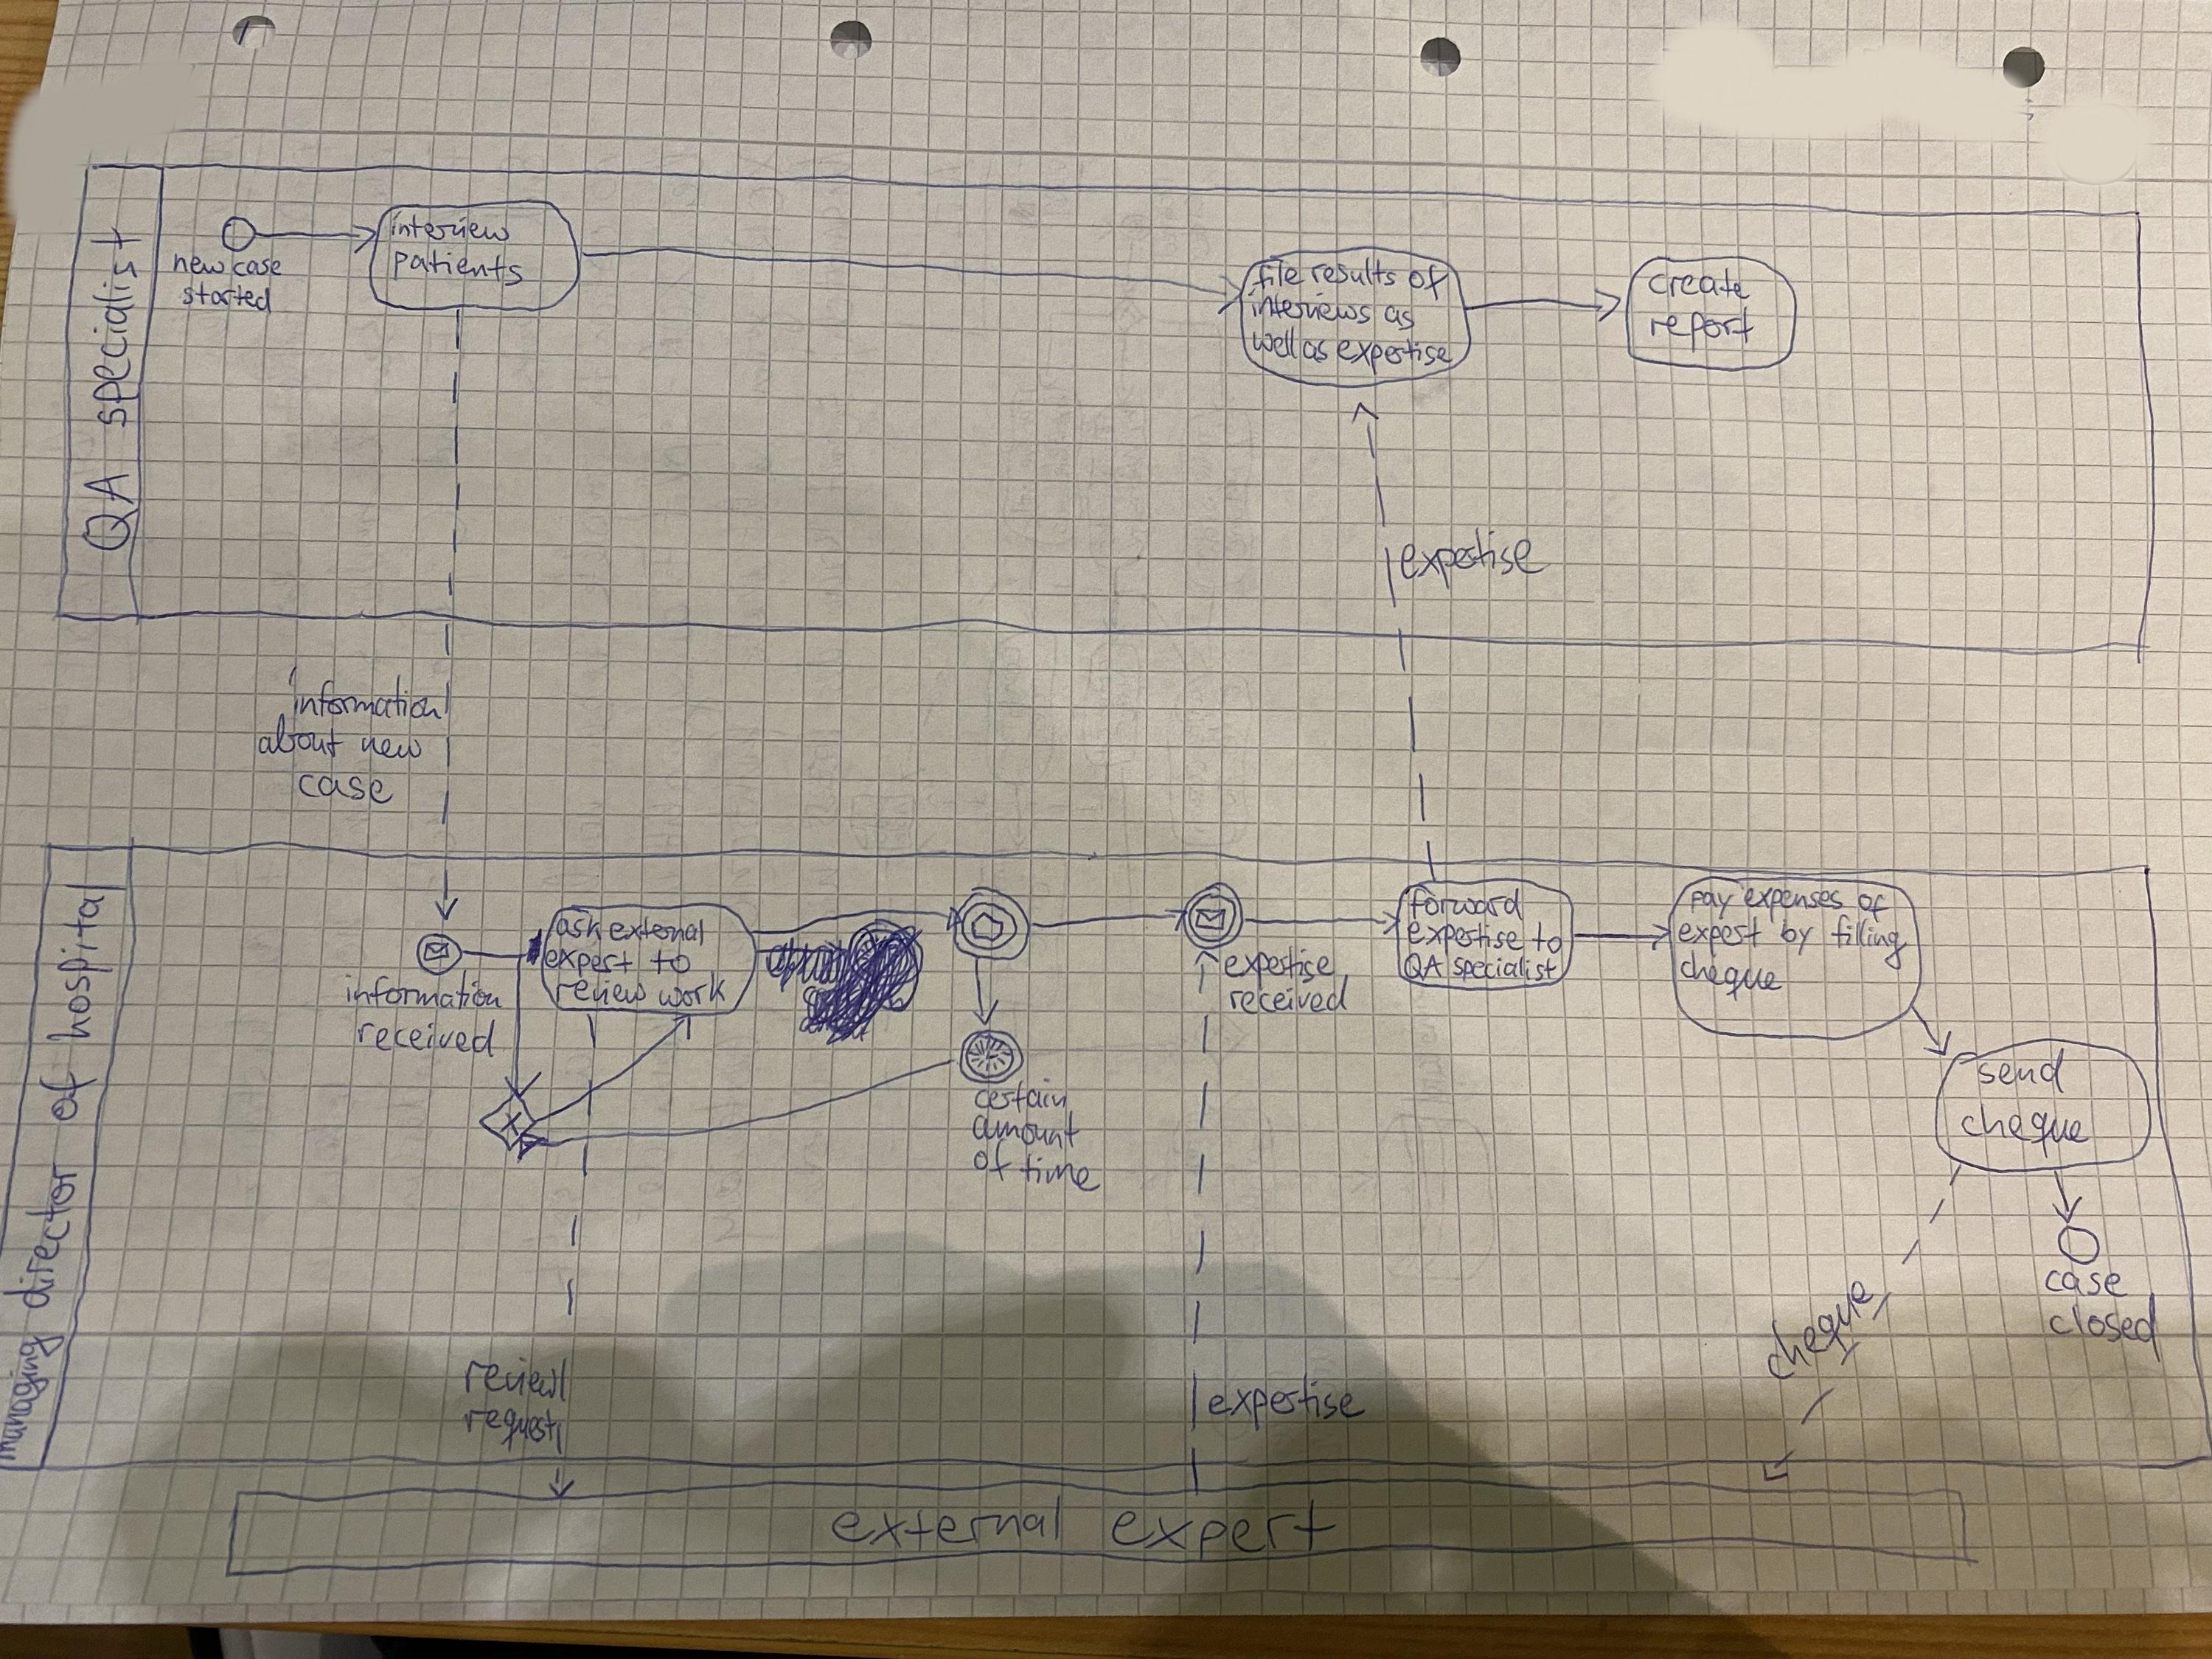 QA specialist
new case
started
interview
patients
file results of
interviews as
well as expertise
create
report
expertise
information
about new
case
managing director of hospital
information
received
ask external
expert to
review work
certain
amount
of time
expertise
received
forward
expertise to
QA specialist
pay expenses of
expert by filling
cheque
send
cheque
case
closed
review
request
expertise
cheque
external expert